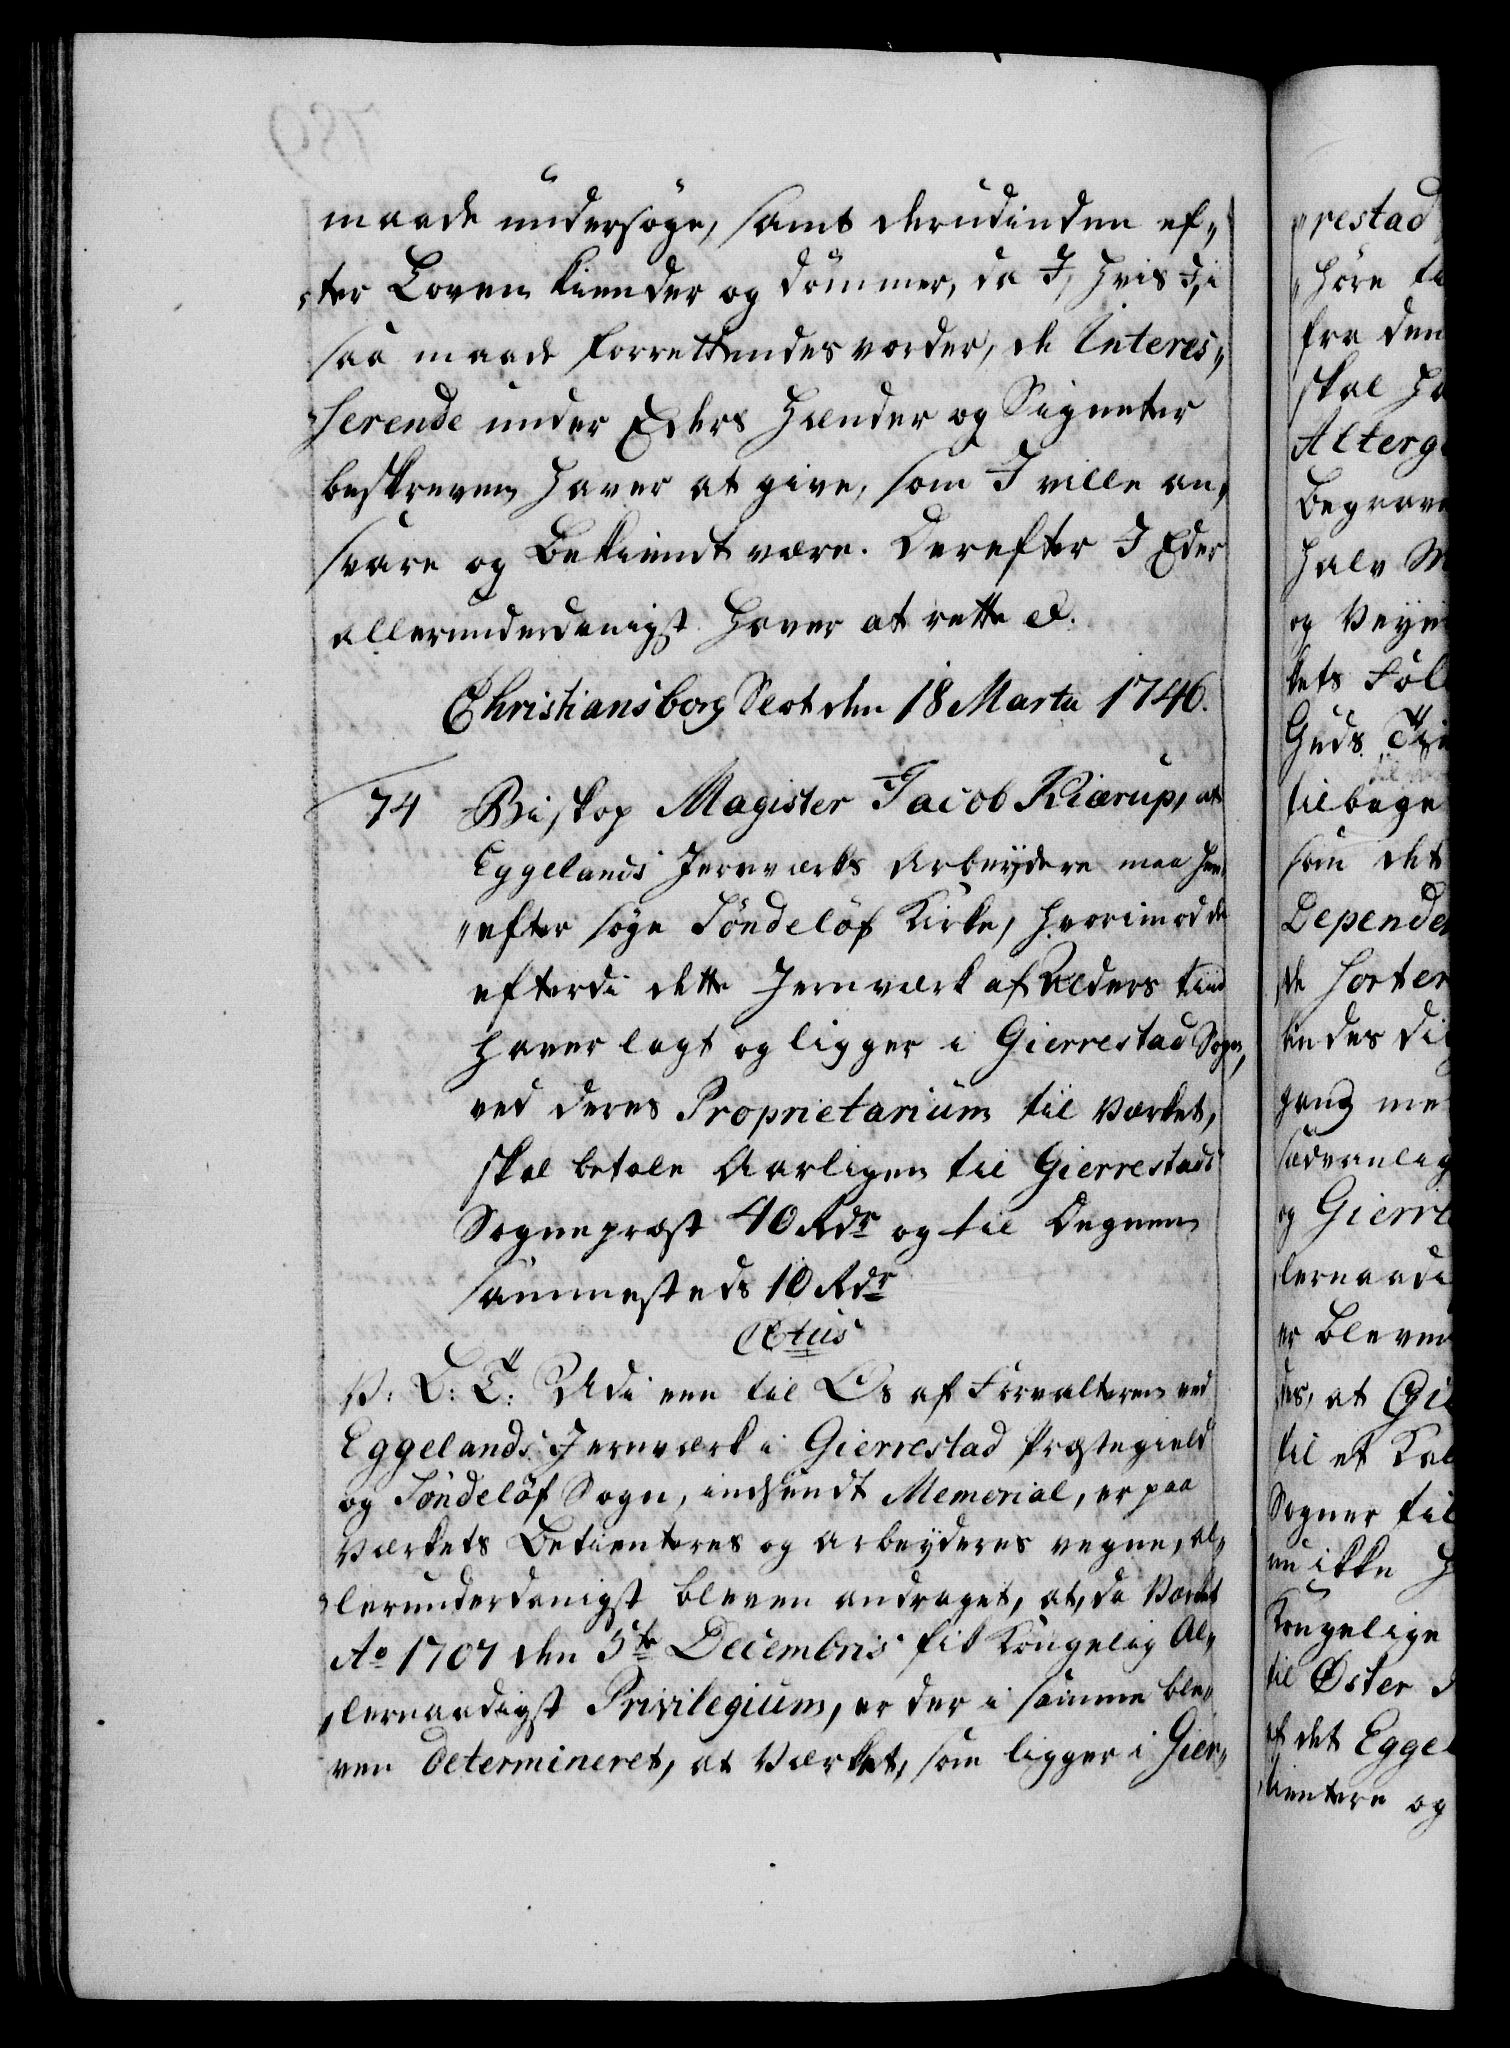 maade undersøge, samt derudinden ef„
„ter Loven kiender og dømmer, da I, hvis I, i
saa maade forrettendes vorder, de Interes„
„serende under Eders Hænder og Signeter
beskreven haver at give, som I ville an„
svare og bekiendt være. Derefter I Eder
allerunderdanigst haver at rette &.
Christiansborg Slot den 18 Martii 1746.
74 Biskop Magister Jacob Kiærup, at
Eggelands Jernværks Arbeydere maa her„
„efter søge Söndelöf Kirke, hvorimod de
efterdi dette Jernværk af Alders tiid
haver lagt og ligger i Gierrestad Sogn,
ved deres Proprietarium til Værket,
skal betale Aarligen til Gierrestads
Sognepræst 40 Rdr og til Degnen
sammesteds 10 Rdr
V: G: T: Udi een til Os af Forvalteren ved
Eggelands Jernværk i Gierrestad Præstegield
og Söndelöf Sogn, indsendt Memorial, er paa
Værkets Betienteres og Arbeyderes vegne, al„
„lerunderdanigst bleven andraget, at, da Værket
Ao 1707 den 5te Decembris fik Kongelig Al„
„lernaadigst Privilegium, er der i samme ble„
ven determineret, at Værket, som ligger i Gier„
„restad
„høre ti
fra den
skal ha
Alterg
Begrave
halv M
og Veyen
kets Fol
Guds
tilbage
som det
Depende
de sorter
endes di
gang me
sædvanlig
og Gierre
lernaadi
er bleven
des, at Gi
til et Kal
Sogner til
en ikke h
Kongelige
til Øster
af det Eggel
tientere og